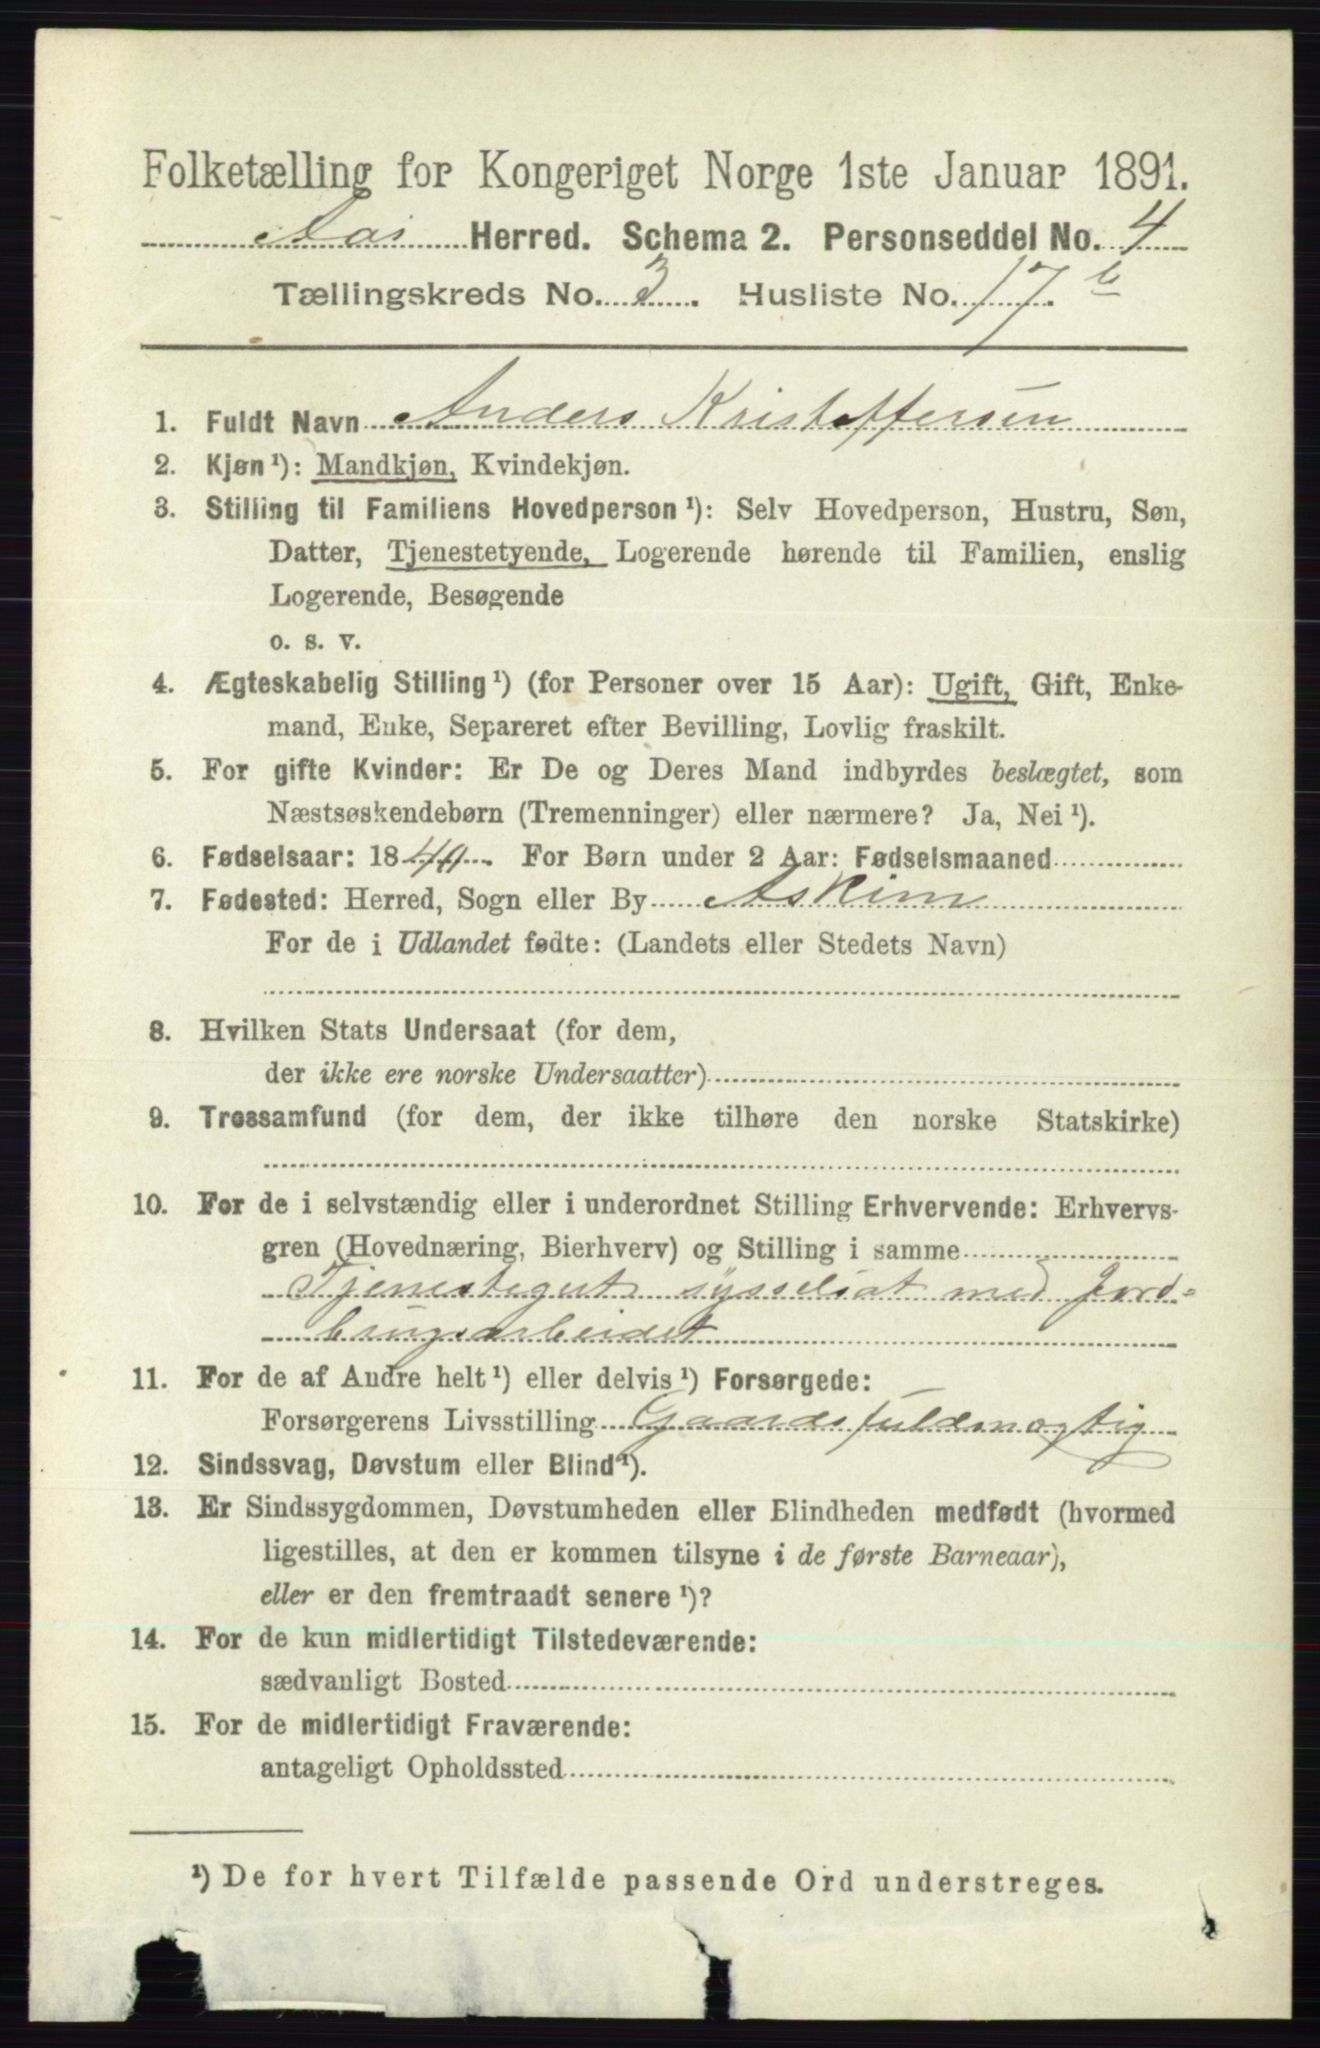 Folketælling for Kongeriget Norge 1ste Januar 1891.
Aas Herred. Schema 2. Personseddel No. 4
Tællingskreds No. 3. Husliste No. 17 b
1. Fuldt Navn Anders Kristoffersen
2. Kjøn ¹): Mandkjøn, Kvindekjøn.
3. Stilling til Familiens Hovedperson ¹): Selv Hovedperson, Hustru, Søn,
Datter, Tjenestetyende, Logerende hørende til Familien, enslig
Logerende, Besøgende
o. s. v.
4. Ægteskabelig Stilling ¹) (for Personer over 15 Aar): Ugift, Gift, Enke-
mand, Enke, Separeret efter Bevilling, Lovlig fraskilt.
5. For gifte Kvinder: Er De og Deres Mand indbyrdes beslægtet, som
Næstsøskendebørn (Tremenninger) eller nærmere? Ja, Nei ¹).
6. Fødselsaar: 18 . For Børn under 2 Aar: Fødselsmaaned
7. Fødested: Herred, Sogn eller By Askim
For de i Udlandet fødte: (Landets eller Stedets Navn)
8. Hvilken Stats Undersaat (for dem,
der ikke ere norske Undersaatter)
9. Trossamfund (for dem, der ikke tilhøre den norske Statskirke)
10. For de i selvstændig eller i underordnet Stilling Erhvervende: Erhvervs-
gren (Hovednæring, Bierhverv) og Stilling i samme
Tjenestegut sysselsat med Jord-
brugsarbeidet
11. For de af Andre helt ¹) eller delvis ¹) Forsørgede:
Forsørgerens Livsstilling Gaardsfuldmægtig
12. Sindssvag, Døvstum eller Blind ¹).
13. Er Sindssygdommen, Døvstumheden eller Blindheden medfødt (hvormed
ligestilles, at den er kommen tilsyne i de første Barneaar),
eller er den fremtraadt senere ¹)?
14. For de kun midlertidigt Tilstedeværende:
sædvanligt Bosted
15. For de midlertidigt Fraværende:
antageligt Opholdssted
¹) De for hvert Tilfælde passende Ord understreges.